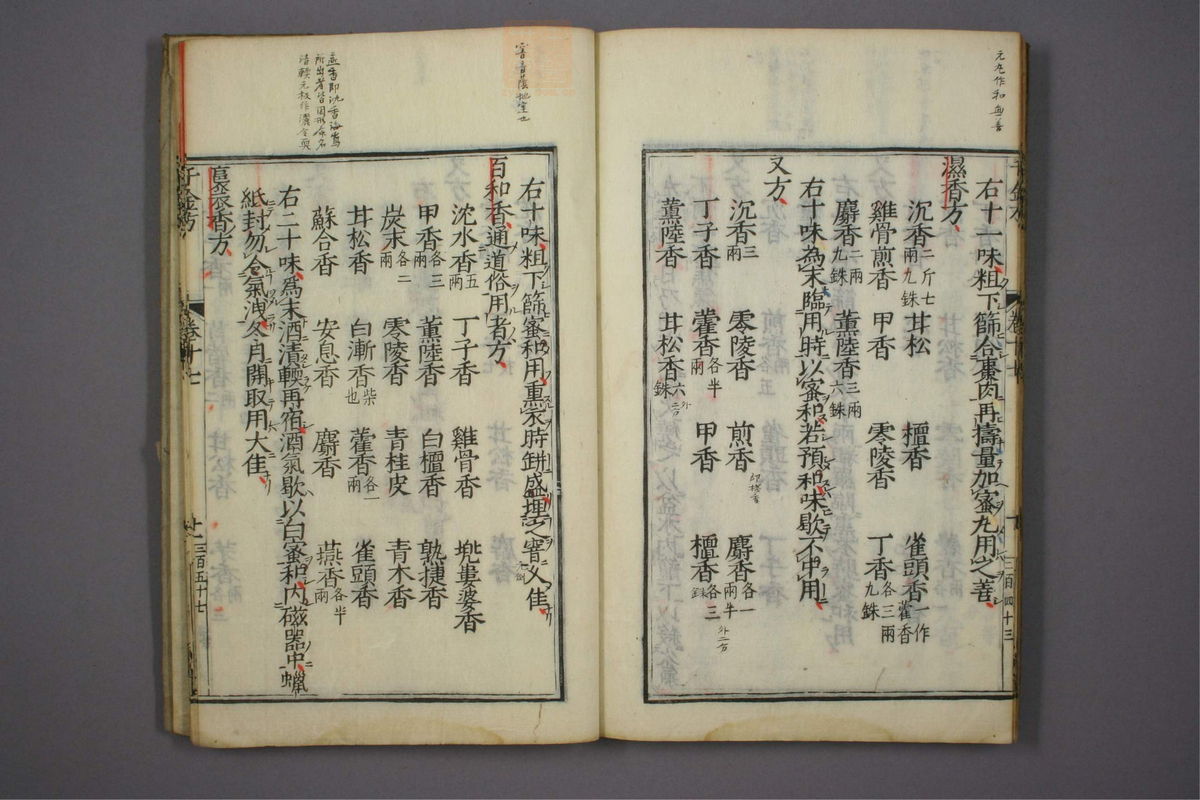 元丸作和無善
三百四十三
右十一味粗下篩合棗肉再擣量加蜜丸用之善
濕香方
沉香二斤七兩九銖 甘松 檀香 雀頭香一作藿香
雞骨煎香 甲香 零陵香 丁香各三兩九銖
麝香二兩九銖 薰陸香三兩六銖
右十味為末臨用時以蜜和若預和味歇不中用
又方
沉香三兩 零陵香 煎香 麝香各一兩半
丁子香 藿香各半兩 甲香 檀香各三銖 外二古
薰陸香 甘松香六銖
窨音蔭地室也
右十味粗下篩蜜和用熏衣時缾盛埋之窨乂佳
百和香通道俗用者方
沈水香五兩 丁子香 雞骨香 兜婁婆香
甲香各三兩 薰陸香 白檀香 孰捷香
炭末各二兩 零陵香 青桂皮 青木香
甘松香 白漸香柴也 藿香各一兩 雀頭香
蘇合香 安息香 麝香 燕香各半兩
右二十味為末酒漬輭再宿酒氣歇以白蜜和內磁器中蠟
紙封勿令氣洩冬月開取用大佳
裛衣香方
千金方 卷十七 三百五十七